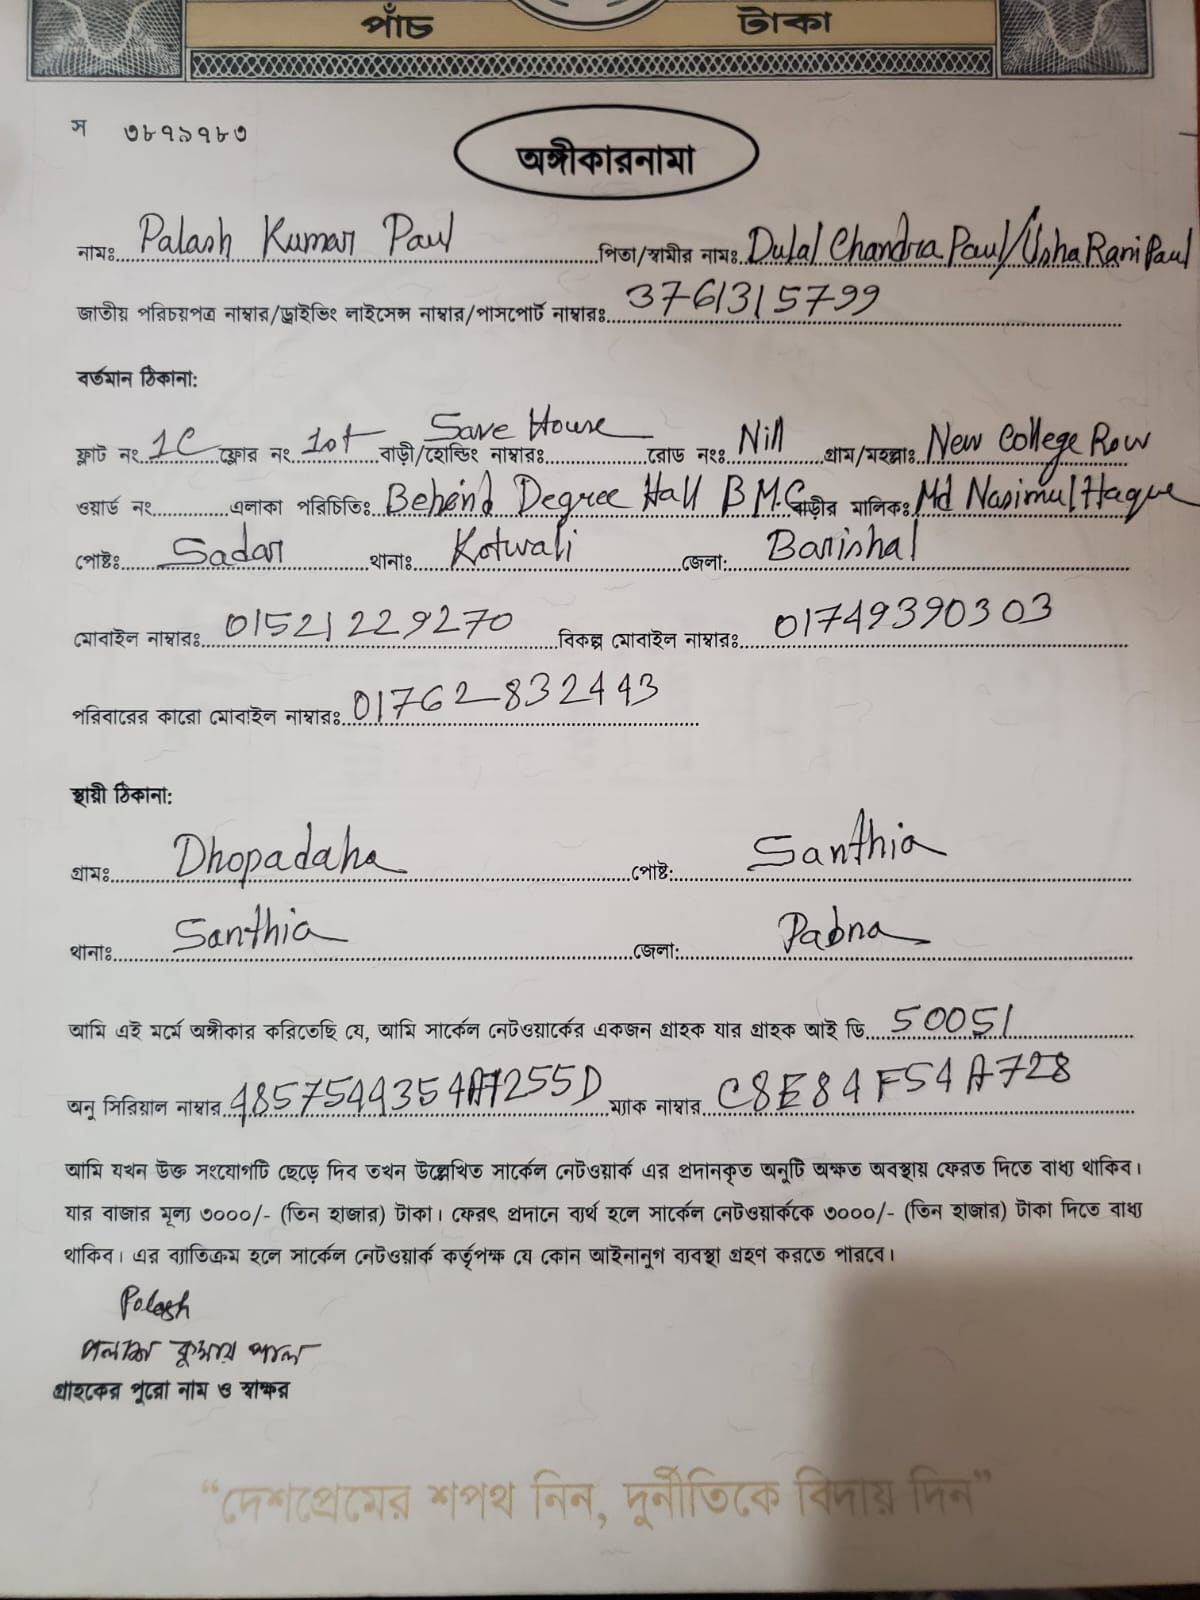 পাঁচ টাকা
স ৩৮৭৯৭৮৩
অঙ্গীকারনামা
নামঃ Palash Kumar Paul পিতা/স্বামীর নামঃ Dulal Chandra Paul/Usha Rani Paul
জাতীয় পরিচয়পত্র নাম্বার/ড্রাইভিং লাইসেন্স নাম্বার/পাসপোর্ট নাম্বারঃ 3761315799
বর্তমান ঠিকানা:
ফ্লাট নং 1C ফ্লোর নং 1st বাড়ী/হোল্ডিং নাম্বারঃ Save House রোড নংঃ Nill গ্রাম/মহল্লাঃ New College Row
ওয়ার্ড নং এলাকা পরিচিতিঃ Behind Degree Hall B.M.C বাড়ীর মালিকঃ Md Nasimul Haque
পোষ্টঃ Sadar থানাঃ Kotwali জেলা: Barishal
মোবাইল নাম্বারঃ 01521229270 বিকল্প মোবাইল নাম্বারঃ 01749390303
পরিবারের কারো মোবাইল নাম্বারঃ 01762832443
স্থায়ী ঠিকানা:
গ্রামঃ Dhopadaha পোষ্ট: Santhia
থানাঃ Santhia জেলা: Pabna
আমি এই মর্মে অঙ্গীকার করিতেছি যে, আমি সার্কেল নেটওয়ার্কের একজন গ্রাহক যার গ্রাহক আই ডি 50051
অনু সিরিয়াল নাম্বার 4857544354A7255D ম্যাক নাম্বার C8E84F54A728
আমি যখন উক্ত সংযোগটি ছেড়ে দিব তখন উল্লেখিত সার্কেল নেটওয়ার্ক এর প্রদানকৃত অনুটি অক্ষত অবস্থায় ফেরত দিতে বাধ্য থাকিব।
যার বাজার মূল্য ৩০০০/- (তিন হাজার) টাকা। ফেরৎ প্রদানে ব্যর্থ হলে সার্কেল নেটওয়ার্ককে ৩০০০/- (তিন হাজার) টাকা দিতে বাধ্য
থাকিব। এর ব্যাতিক্রম হলে সার্কেল নেটওয়ার্ক কর্তৃপক্ষ যে কোন আইনানুগ ব্যবস্থা গ্রহণ করতে পারবে।
Polash
পলাশ কুমার পাল
গ্রাহকের পুরো নাম ও স্বাক্ষর
“দেশপ্রেমের শপথ নিন, দুর্নীতিকে বিদায় দিন”